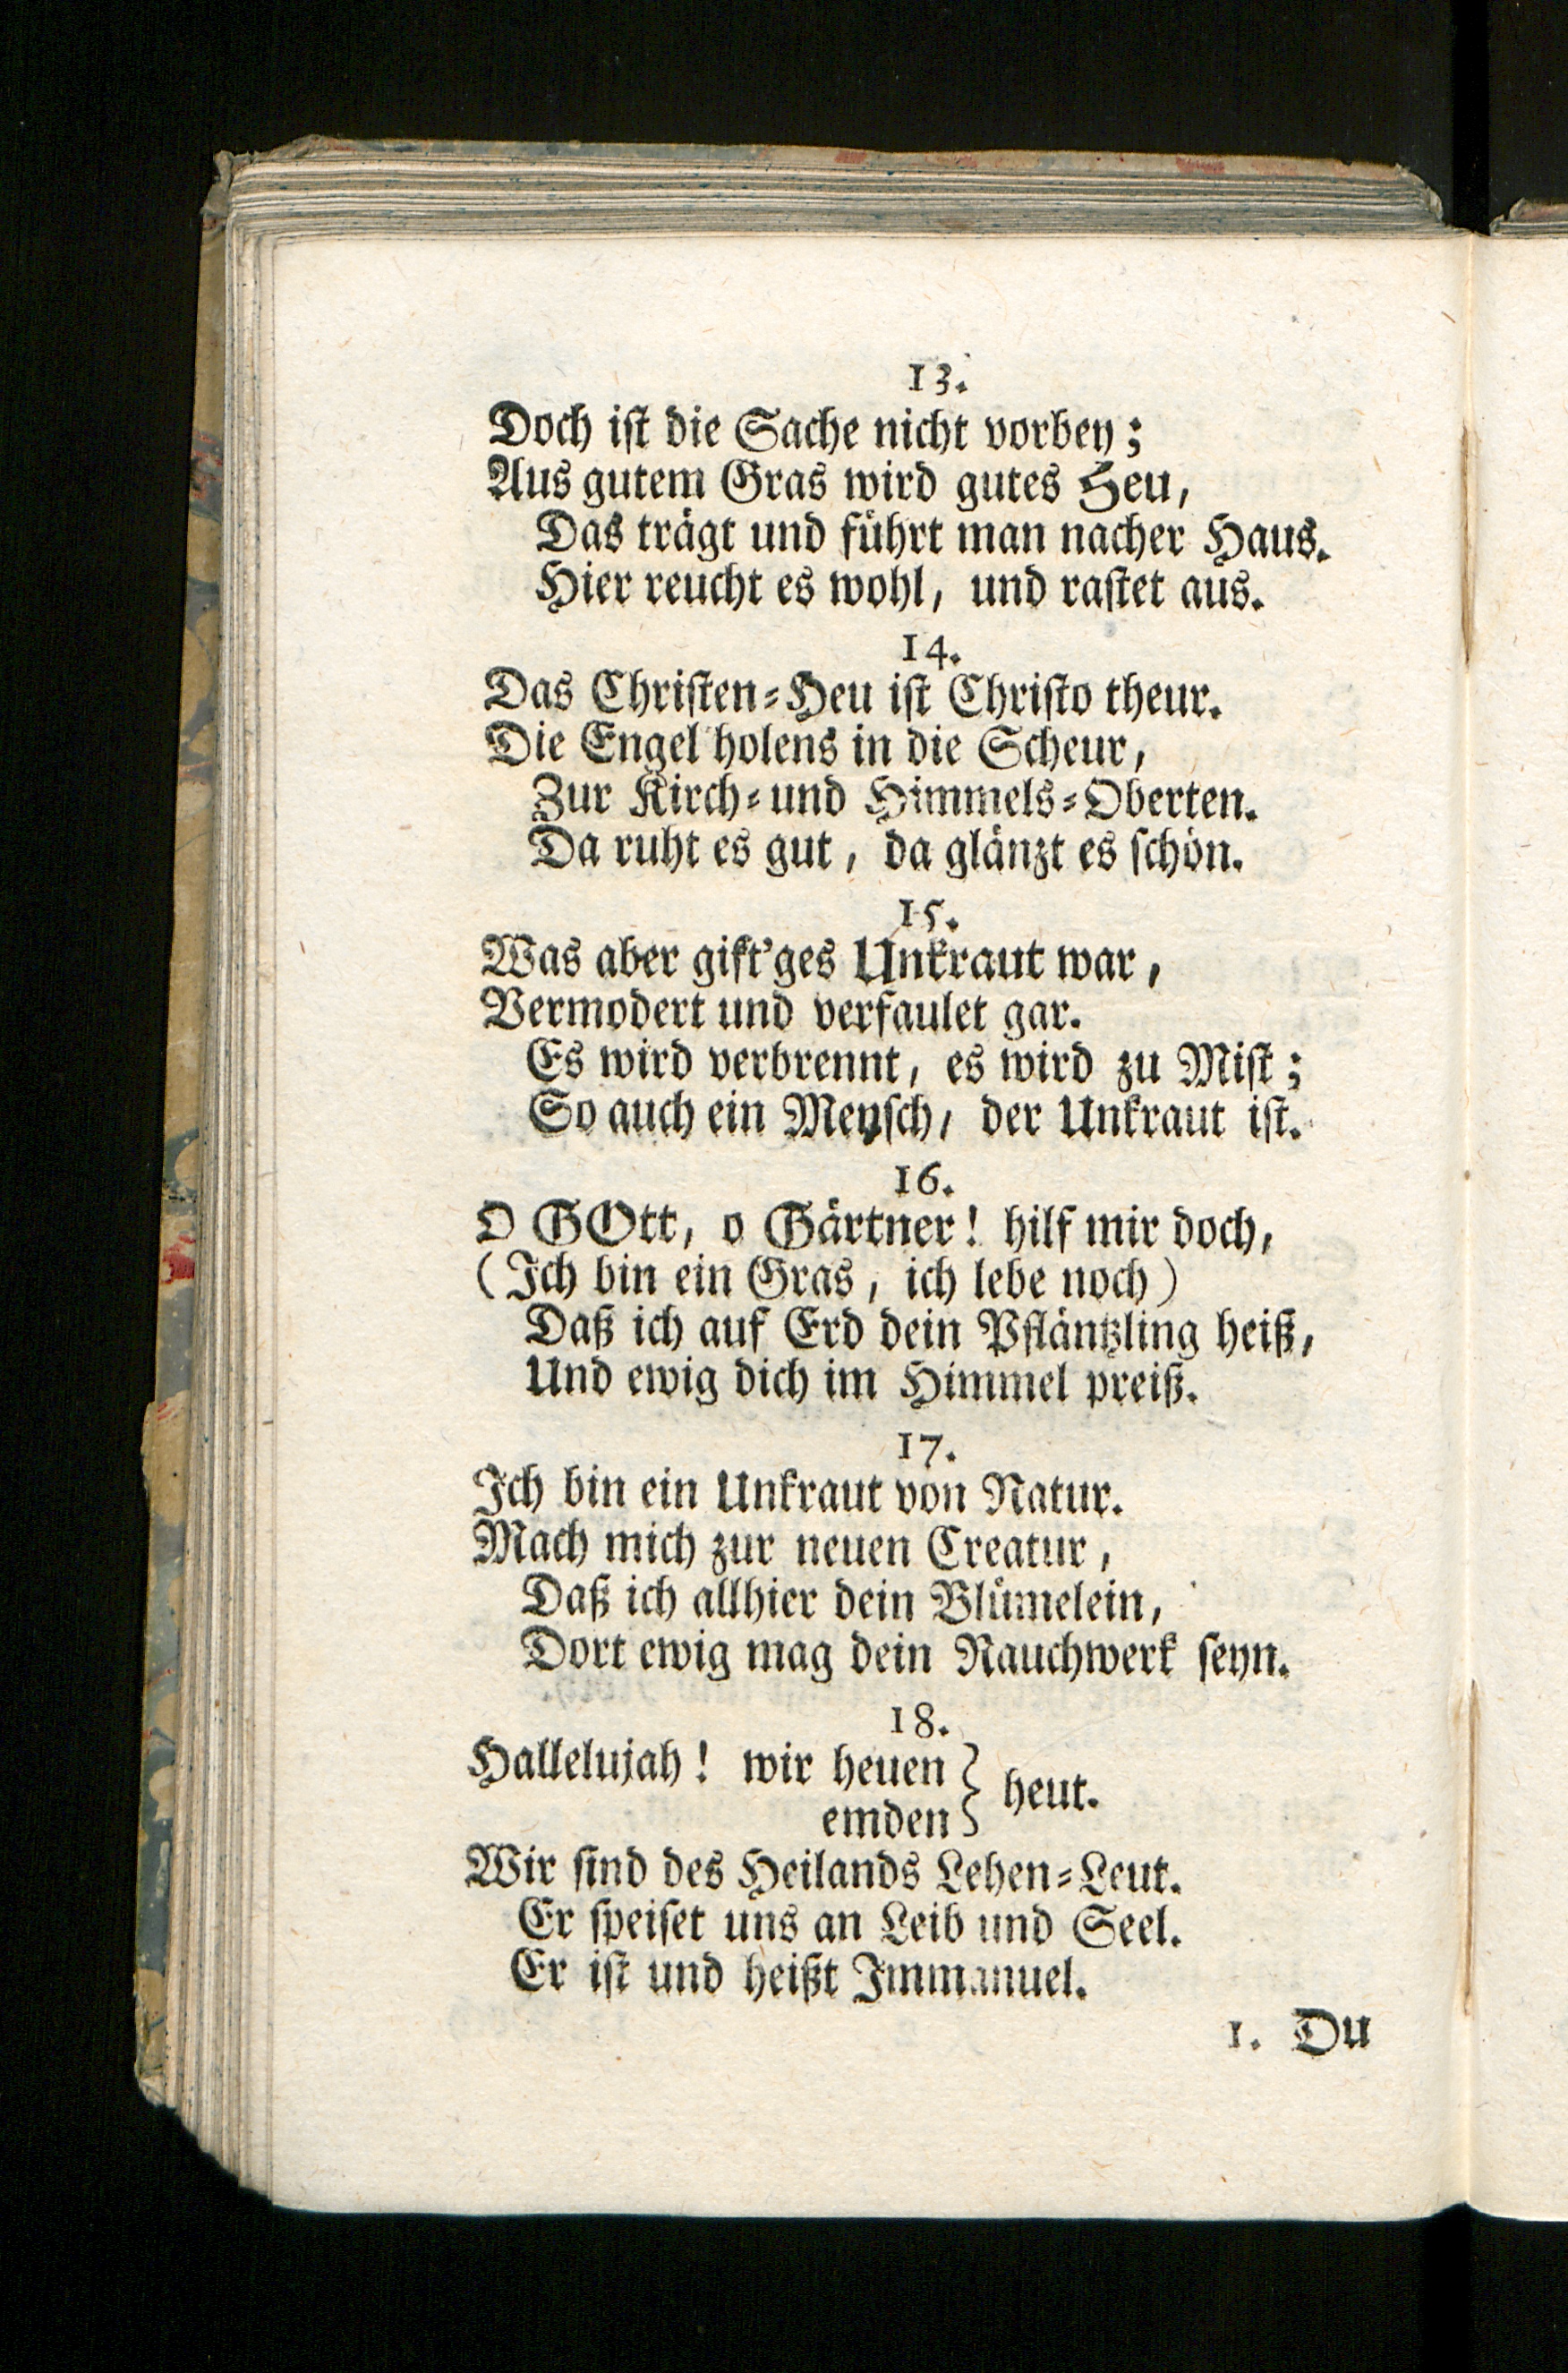 13.
Doch iſt die Sache nicht vorbey;
Aus gutem Gras wird gutes Heu,
Das trägt und führt man nacher Haus.
Hier reucht es wohl, und raſtet aus.
14.
Das Chriſten-Heu iſt Chriſto theur.
Die Engel holens in die Scheur,
Zur Kirch- und Himmels-Oberten.
Da ruht es gut, da glänzt es ſchön.
15.
Was aber gift'ges Unkraut war,
Vermodert und verfaulet gar.
Es wird verbrennt, es wird zu Miſt;
So auch ein Menſch, der Unkraut iſt.
16.
O GOtt, o Gärtner! hilf mir doch,
(Ich bin ein Gras, ich lebe noch)
Daß ich auf Erd dein Pfläntzling heiß,
Und ewig dich im Himmel preiß.
17.
Ich bin ein Unkraut von Natur.
Mach mich zur neuen Creatur,
Daß ich allhier dein Blümelein,
Dort ewig mag dein Rauchwerk ſeyn.
18.
Hallelujah! wir heuen } heut.
emden
Wir ſind des Heilands Lehen-Leut.
Er ſpeiſet uns an Leib und Seel.
Er iſt und heißt Immanuel.
1. Du